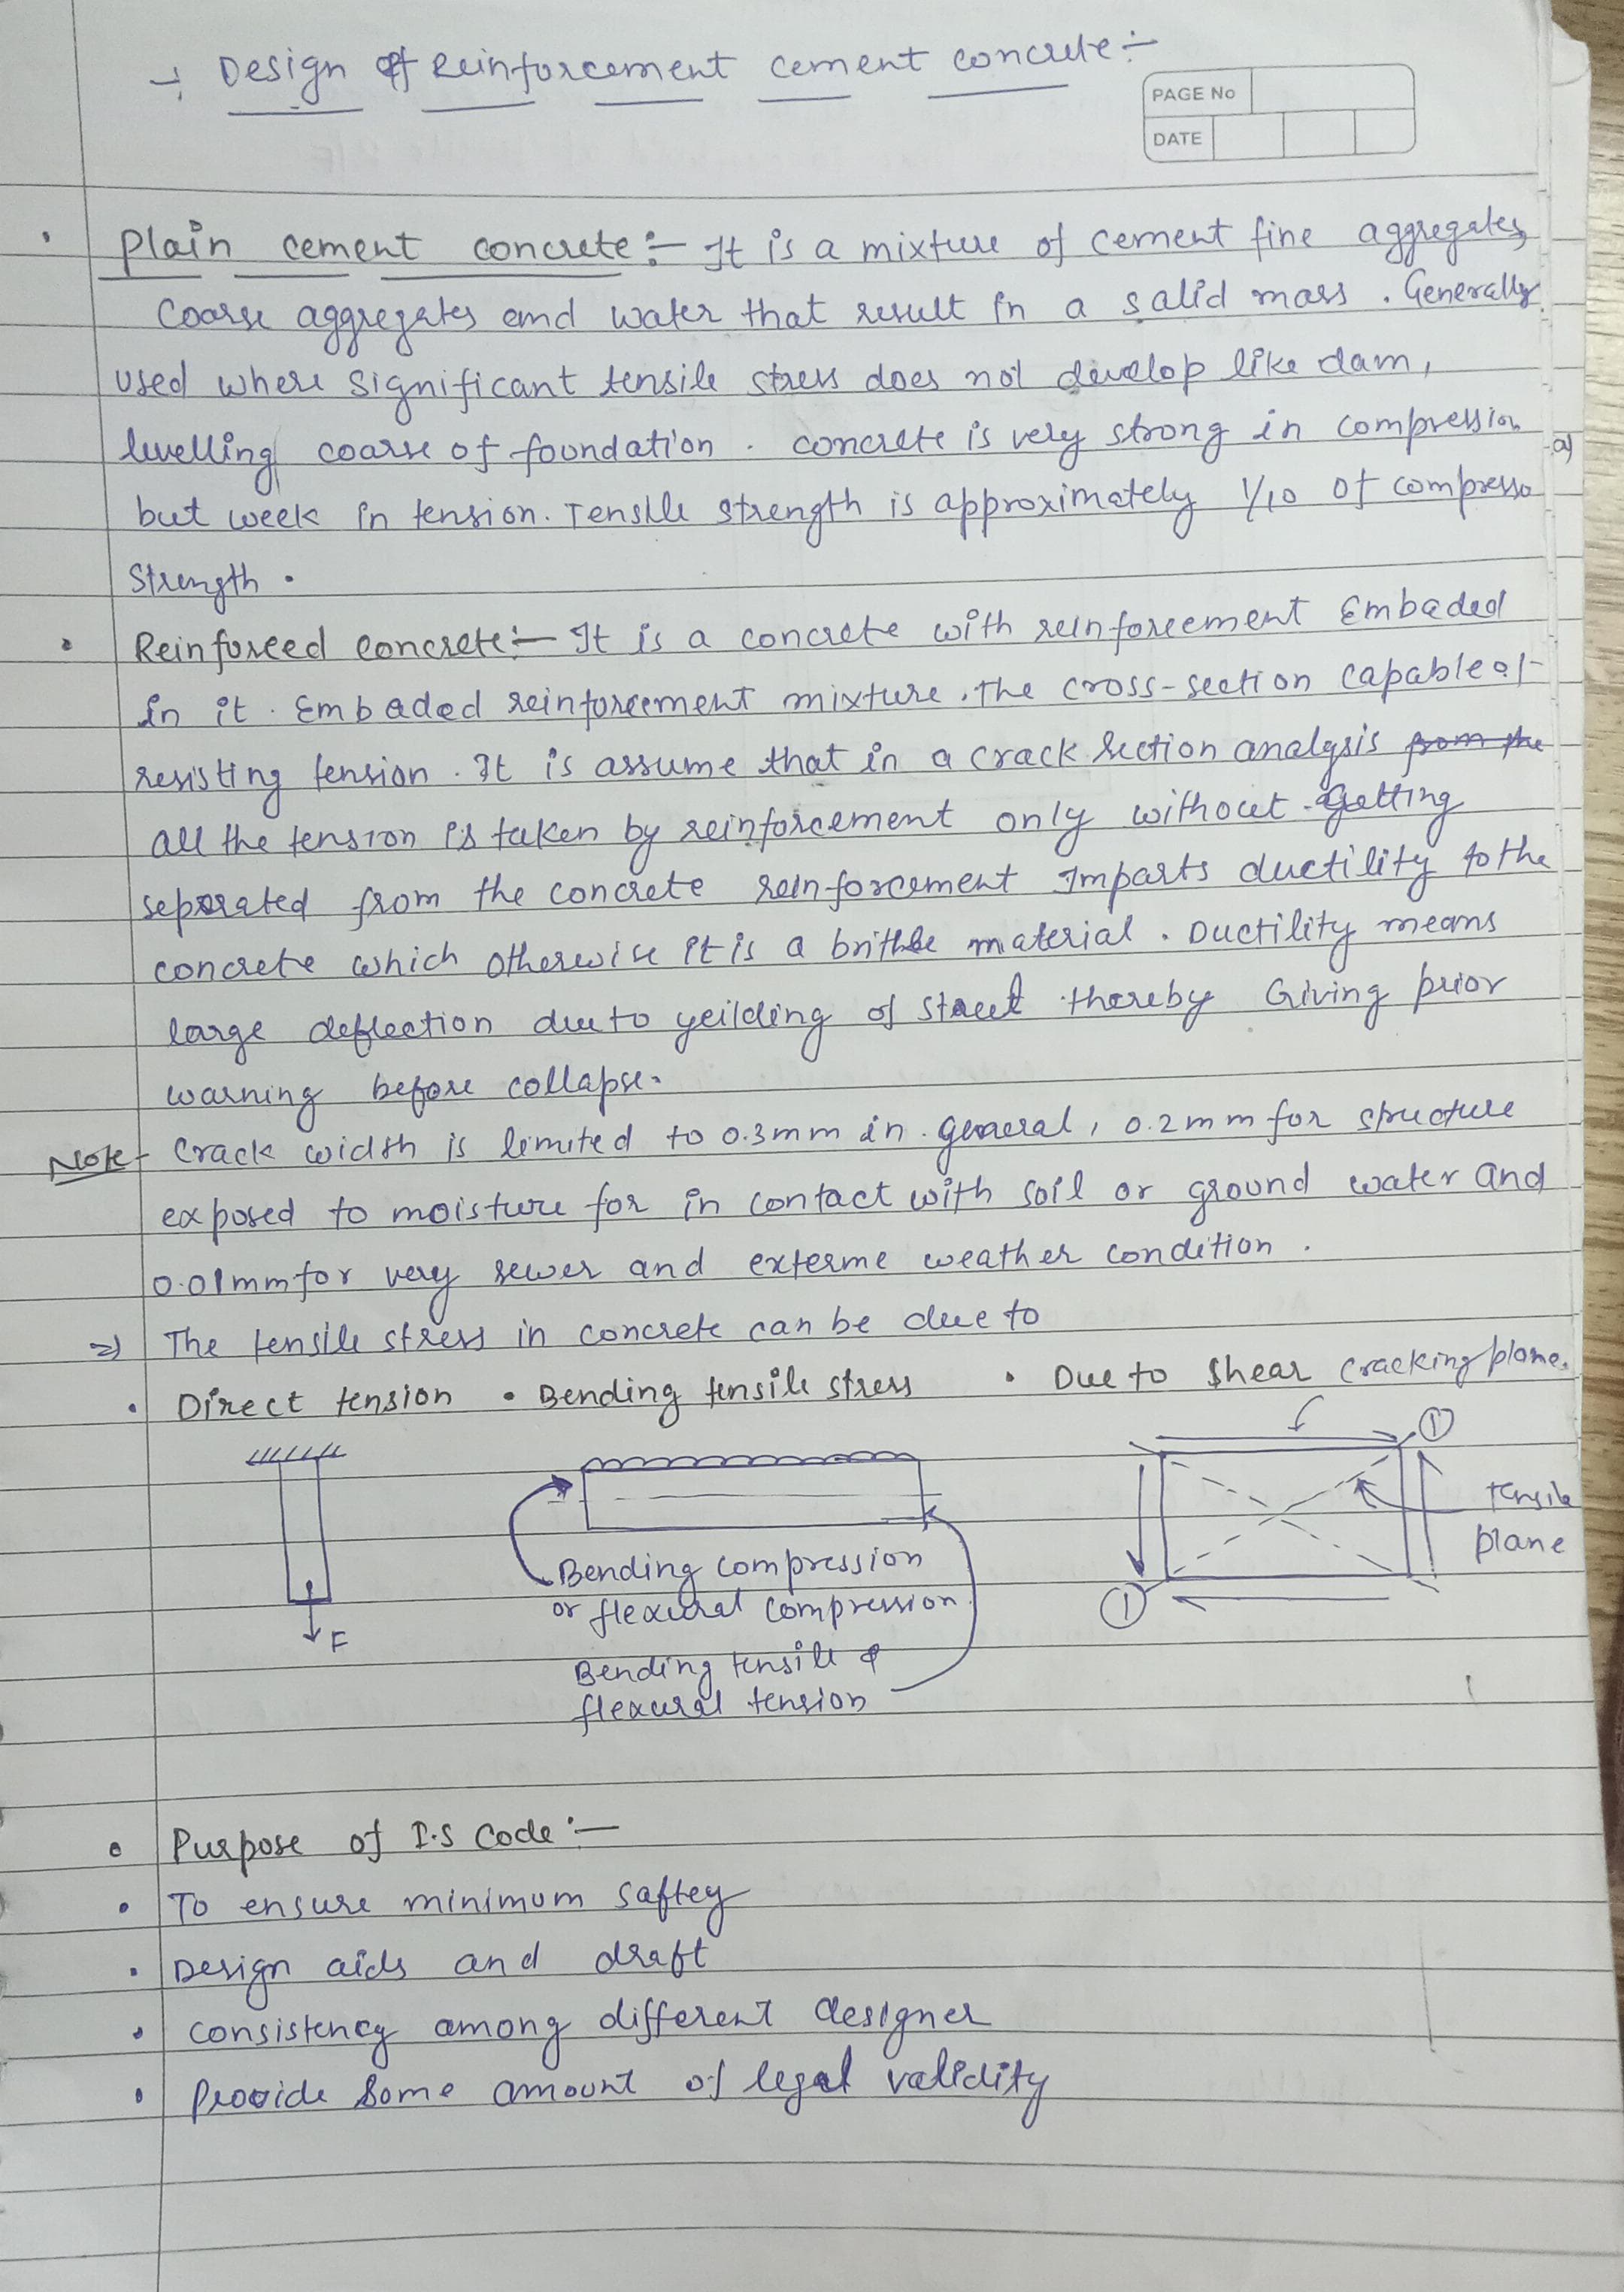 → Design of Reinforcement cement concrete:-
PAGE No
DATE
• Plain cement concrete:- It is a mixture of cement fine aggregates,
Coarse aggregates and water that result in a salid mass. Generally
used where significant tensile stress does not develop like dam,
levelling coarse of foundation. concrete is very strong in compression
a)
but week in tension. Tensile strength is approximately 1/10 of compresso
Strength.
• Reinforced concrete:- It is a concrete with reinforcement Embaded
in it. Embaded reinforcement mixture. The cross-section capable of
resisting tension. It is assume that in a crack section analysis from the
all the tension is taken by reinforcement only without getting
seperated from the concrete reinforcement Imparts ductility to the
concrete which otherwise it is a brittle material. Ductility means
large deflection due to yeilding of steel thereby Giving prior
warning before collapse.
Note- Crack width is limited to 0.3mm in general, 0.2mm for structure
exposed to moisture for in contact with soil or ground water and
0.01mm for very sewer and exterme weather condition.
⇒ The tensile stress in concrete can be due to
• Direct tension • Bending tensile stress • Due to Shear cracking plane.
①
tensile
plane
Bending compression
or flexural compression
①
F
Bending tensile of
flexural tension
• Purpose of I.S Code:-
• To ensure minimum saftey
• Design aids and draft
• consistency among different designer
• Provide Some amount of legal validity